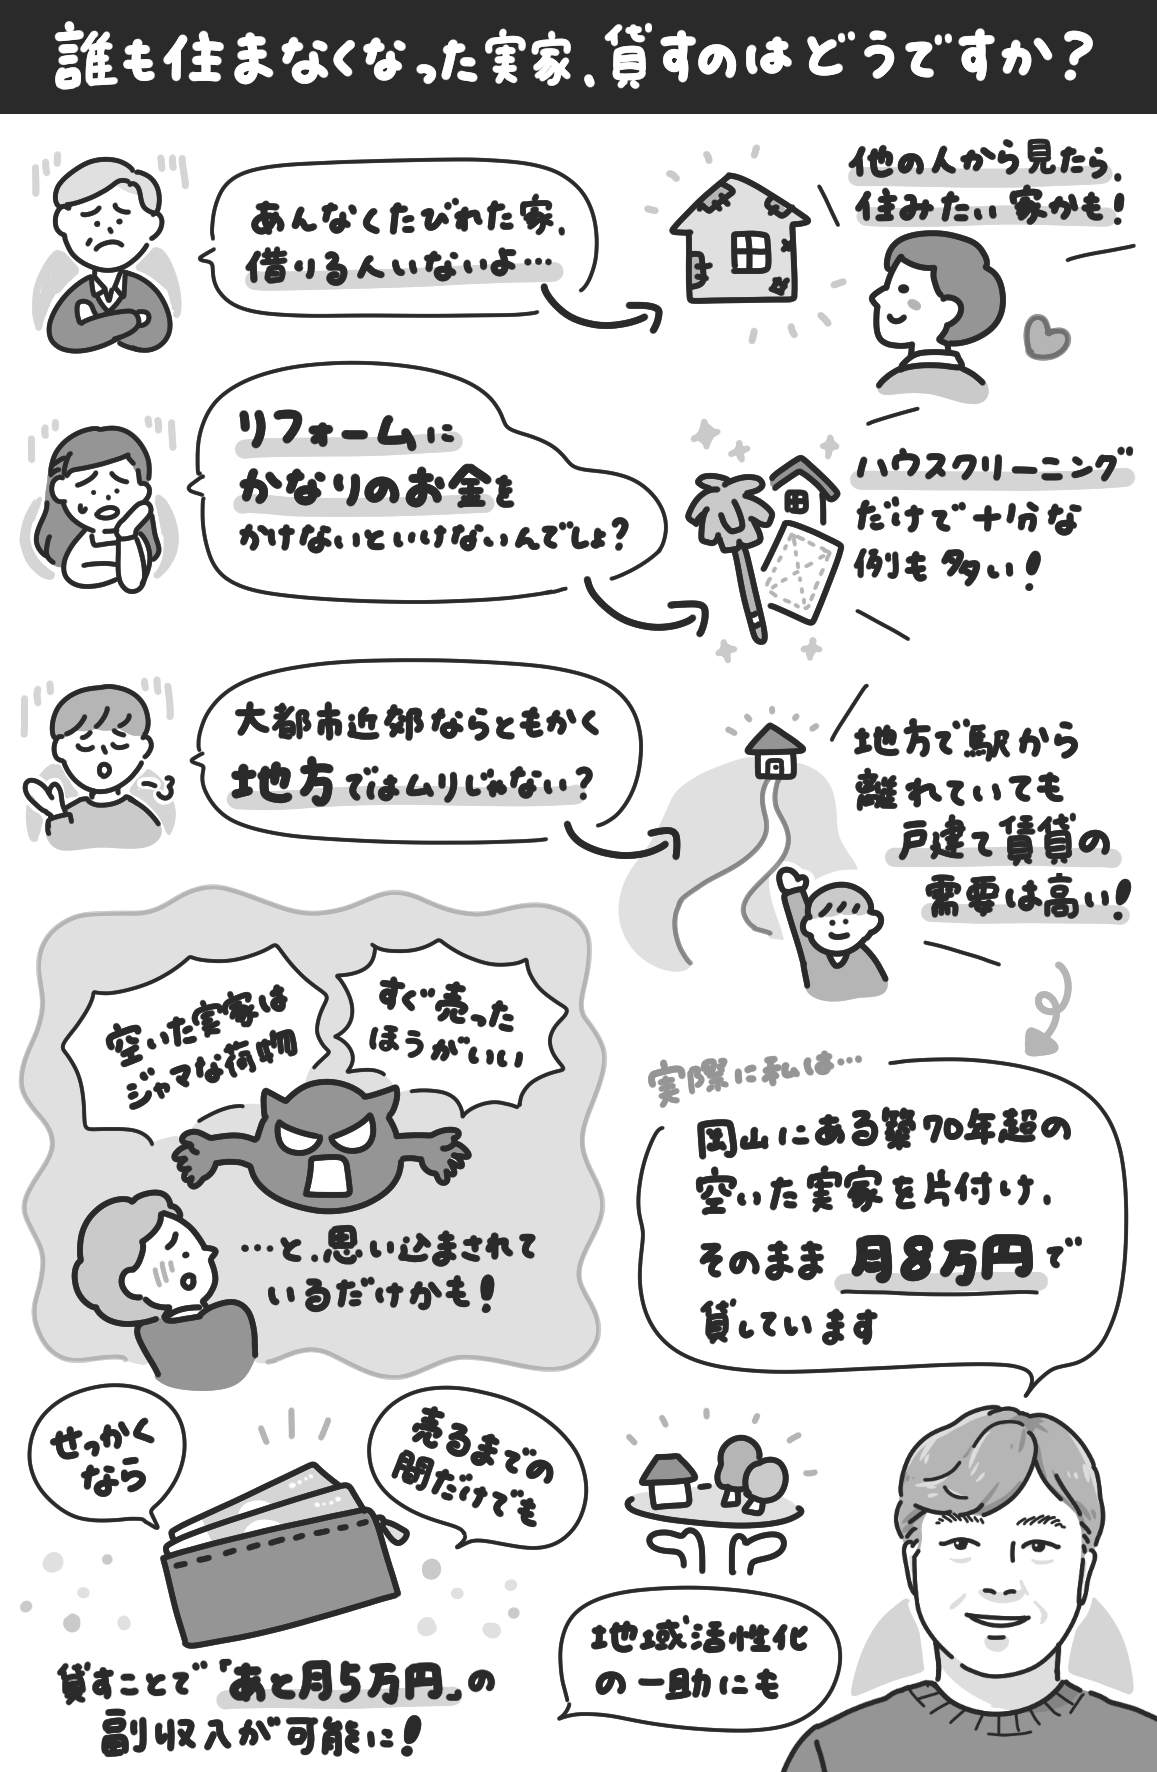 誰も住まなくなった実家、貸すのはどうですか?
あんなくたびれた家、
借りる人いないよ…
他の人から見たら、
住みたい家かも!
リフォームに
かなりのお金を
かけないといけないんでしょ?
ハウスクリーニング
だけで十分な
例も多い!
大都市近郊ならともかく
地方ではムリじゃない?
地方で駅から
離れていても
戸建て賃貸の
需要は高い!
空いた実家は
ジャマな荷物
すぐ売った
ほうがいい
…と、思い込まされて
いるだけかも!
実際に私は…
岡山にある築70年超の
空いた実家を片付け、
そのまま月8万円で
貸しています
せっかく
なら
売るまでの
間だけでも
貸すことで「あと月5万円」の
副収入が可能に!
地域活性化
の一助にも